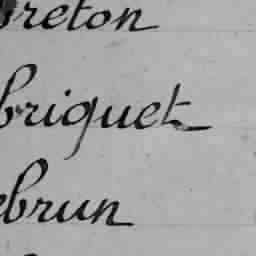 breton
briquet
ebrun